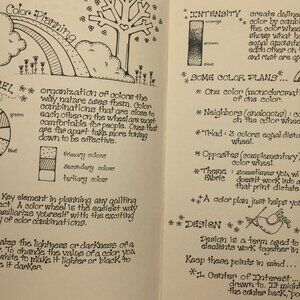 Color Planning
EEL
green
blue
organization of colors the
way nature uses them. Color
combinations that are close to
each other on the wheel are most
comfortable for people. Ones that
are far apart take more toning
down to be effective.
primary colors
secondary colors
tertiary color
Key element in planning any quilting
A color wheel is the easiest way
familiarize yourself with the exciting
of color combinations.
the lightness or darkness of a
change the value of a color you
white to make it lighter or black to
it darker.
INTENSITY
orange
brown
blue
create
color by
the color
shows what
equal
each other on
and rust are
SOME COLOR PLANS
* One color (monochromat
of one color.
* Neighbors
the color wheel.
* Triad: 3 colors equal dista
wheel.
* Opposites (complementary
color wheel.
* Theme fabric: sometimes you wi
doesn't work into
that print dictate
* A color plan just helps you
DESIGN
Design is a term used to
elements work together in
Keep these points in mind...
*1. Center of Interest
drawn to. It might
the center back,